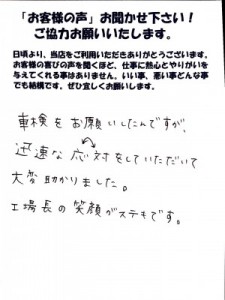 「お客様の声」お聞かせ下さい！
ご協力お願いいたします。
日頃より、当店をご利用いただきありがとうございます。
お客様の喜びの声を聞くほど、仕事に熱心とやりがいを
与えてくれる事はありません。いい事、悪い事どんな事
でも結構です。ぜひ宜しくお願いします。
車検をお願いしたんですが、
迅速な応対をしていただいて
大変助かりました。
工場長の笑顔がステキです。